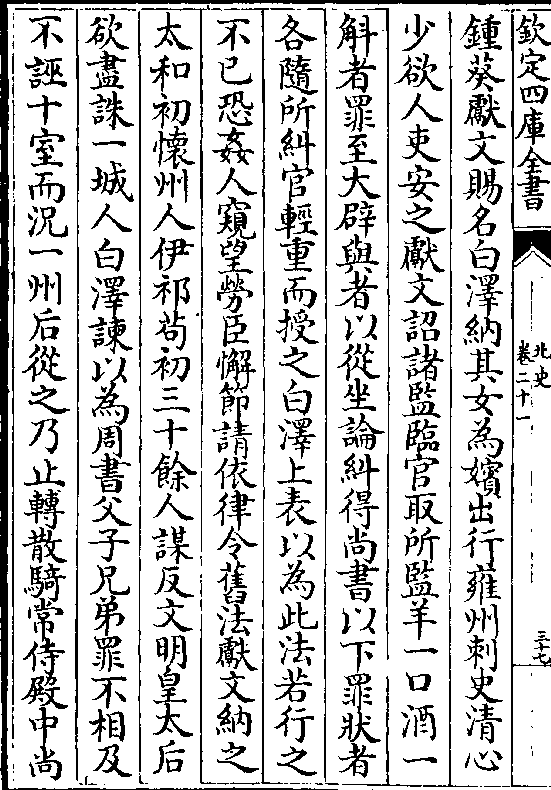 欽定四庫全書
北史
卷二十一
三十七
鍾葵獻文賜名白澤納其女為嬪出行雍州刺史清心
少欲人吏安之獻文詔諸監臨官取所監羊一口酒一
斛者罪至大辟與者以從坐論糾得尚書以下罪狀者
各隨所糾官輕重而授之白澤上表以為此法若行之
不已恐姦人窺望勞臣懈節請依律令舊法獻文納之
太和初懷州人伊祁茍初三十餘人謀反文明皇太后
欲盡誅一城人白澤諫以為周書父子兄弟罪不相及
不誣十室而況一州后從之乃止轉散騎常侍殿中尚